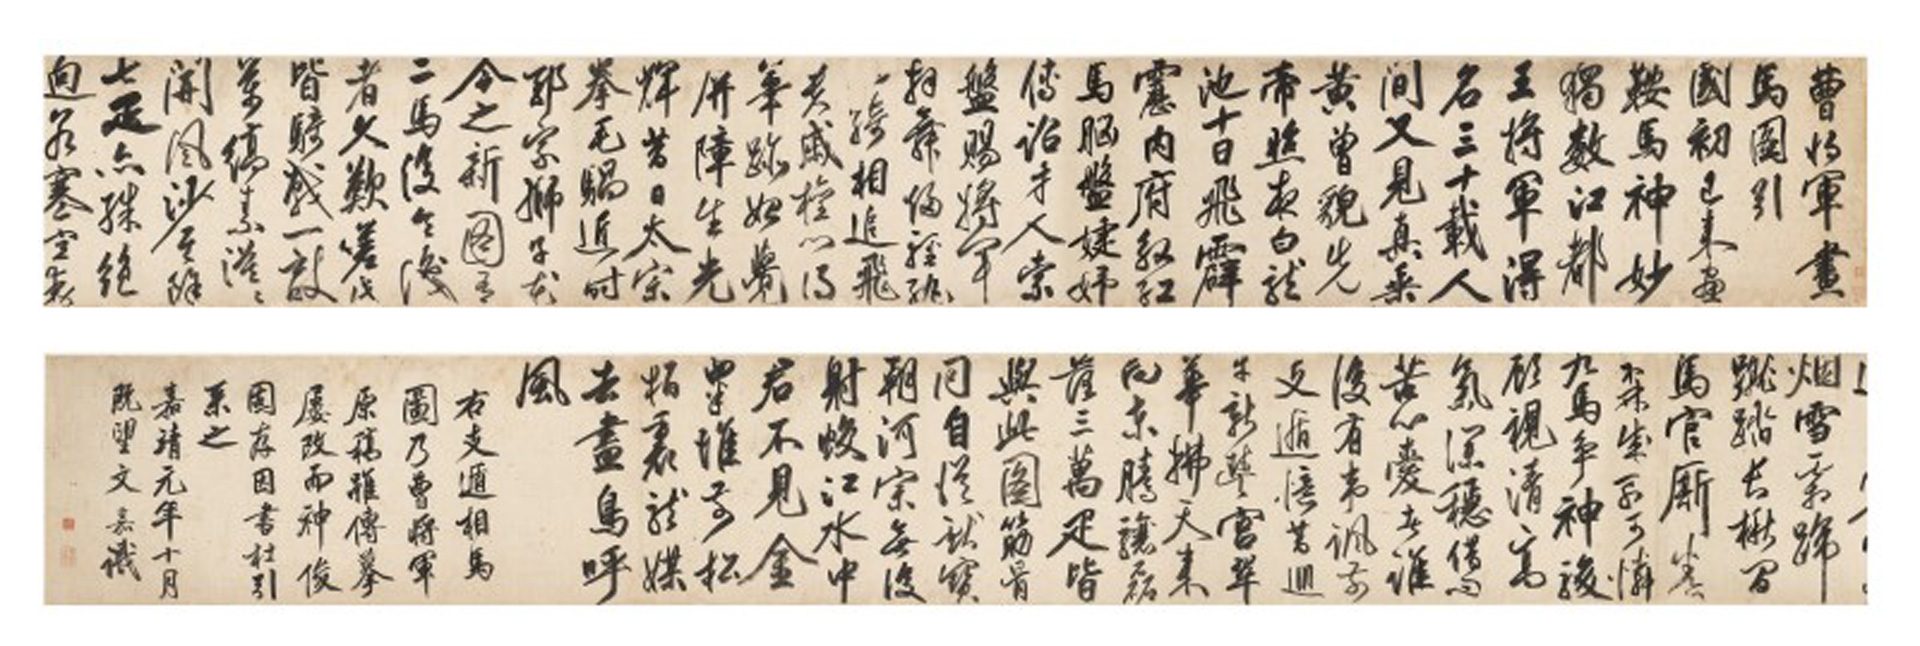 曹將軍畫
馬圖引
國初已來畫
鞍馬神妙
獨數江都
王將軍得
名三十載人
間又見真乘
黃曾貌先
帝照夜白龍
池十日飛霹
靂內府殷紅
馬腦盤婕妤
傳詔才人索
盤賜將軍
拜舞歸輕紈
綺相追飛
貴戚權門得
筆跡始覺
屏障生光
輝昔日太宗
拳毛騧近時
郭家獅子花
今之新圖有
二馬復令識
者久歎嗟此
皆騎戰一敵
萬縞素漠〻
開風沙其餘
七匹亦殊絕
迥若寒空動
烟雪霜蹄
蹴踏長楸間
馬官廝養
森成列可憐
九馬爭神駿
顧視清高
氣深穩借問
苦心愛者誰
後有韋諷前
支遁憶昔巡
幸新豐宮翠
華拂天來
向東騰驤磊
落三萬匹皆
與此圖筋骨
同自從獻寶
朝河宗無復
射蛟江水中
君不見金
粟堆前松
柏裏龍媒
去盡鳥呼
風
右支遁相馬
圖乃曹將軍
原稿雖傳摹
屢改而神俊
固存因書杜引
系之
嘉靖元年十月
既望文嘉識